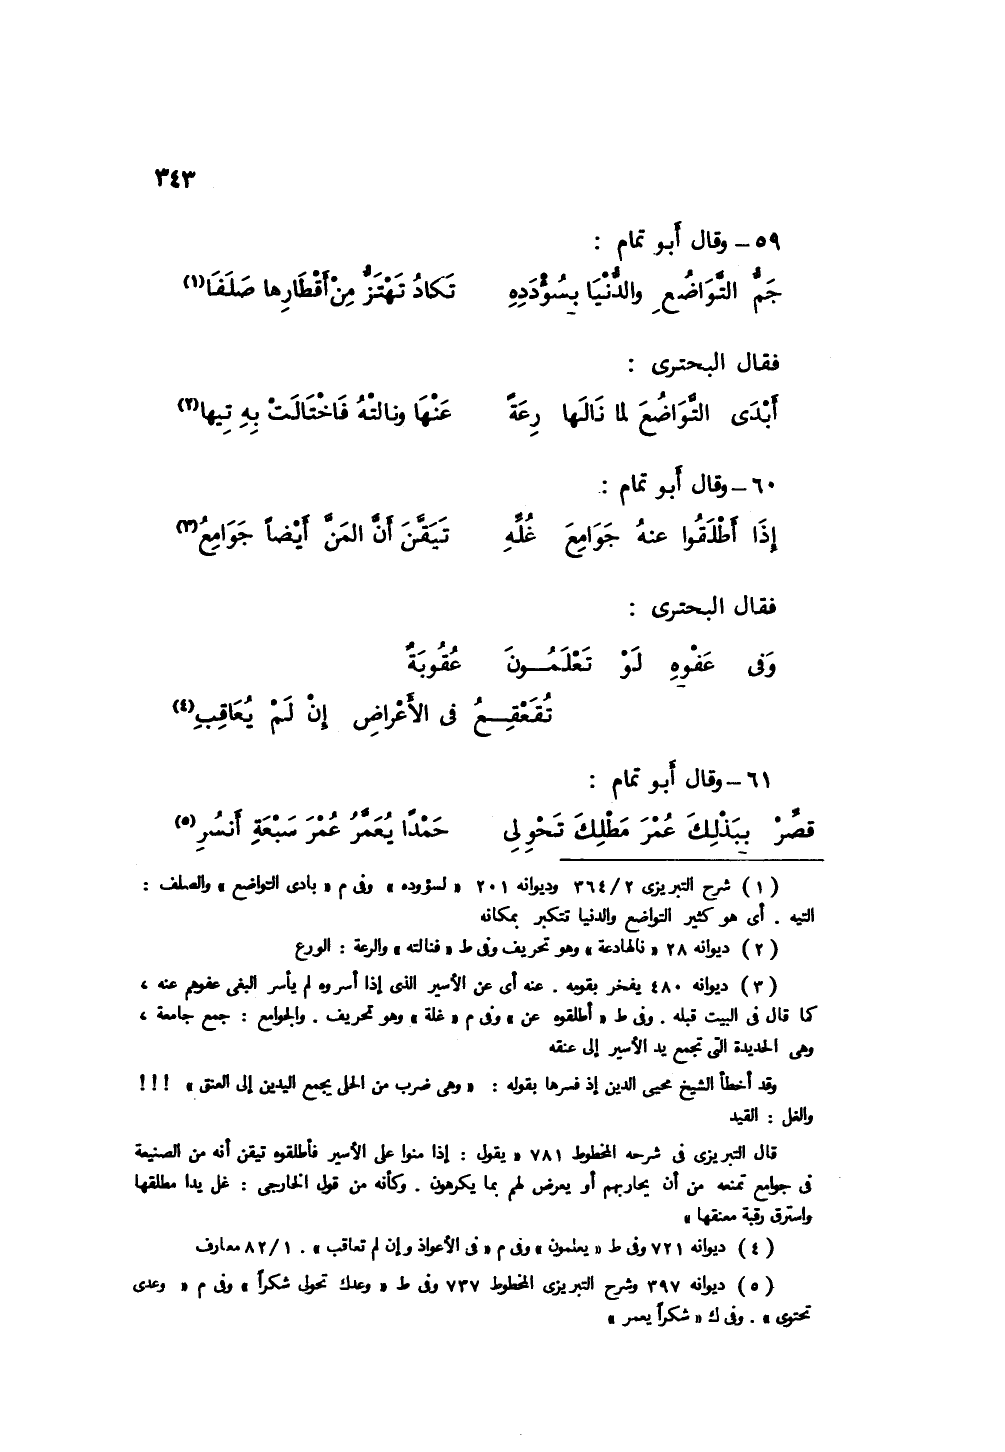 ٣٤٣
٥٩ – وقال أَبو تمام :
جَمُّ التَّوَاضُعِ والدُّنْيَا بِسُؤْدَدِهِ تَكادُ تَهْتَزُّ مِنْ أَقْطَارِها صَلَفَا(١)
فقال البحترى :
أَبْدَى التَّوَاضُعَ لما نَالَها رِعَةً عَنْهَا ونالتْهُ فَاخْتَالَتْ بِهِ تِيها(٢)
٦٠ – وقال أَبو تمام :
إِذَا أَطْلَقُوا عنهُ جَوَامِعَ غُلِّهِ تَيَقَّنَ أَنَّ المَنَّ أَيْضاً جَوَامِعُ(٣)
فقال البحترى :
وَفى عَفْوِهِ لَوْ تَعْلَمُـــونَ عُقُوبَةٌ
تُقَعْقِـــعُ فى الأَعْراضِ إِنْ لَمْ يُعَاقِبِ(٤)
٦١ – وقال أَبو تمام :
قصَّرْ بِبَذْلِكَ عُمْرَ مَطْلِكَ تَحْوِ لى حَمْدًا يُعَمَّرُ عُمْرَ سَبْعَةِ أَنسُرِ(٥)
(١) شرح التبريزى ٣٦٤/٢ وديوانه ٢٠١ « لسؤوده » وفى م « بادى التواضع » والصلف :
التيه . أى هو كثير التواضع والدنيا تتكبر بمكانه
(٢) ديوانه ٢٨ « نالهادعة » وهو تحريف وفى ط « فنالته » والرعة : الورع
(٣) ديوانه ٤٨٠ يفخر بقومه . عنه أى عن الأسير الذى إذا أسروه لم يأسر البغى عفوهم عنه ،
كما قال فى البيت قبله . وفى ط « أطلقوه عن » وفى م « غلة » وهو تحريف . والجوامع : جمع جامعة ،
وهى الحديدة التى تجمع يد الأسير إلى عنقه
وقد أخطأ الشيخ محيى الدين إذ فسرها بقوله : « وهى ضرب من الحلى يجمع اليدين إلى العنق » !!!
والغل : القيد
قال التبريزى فى شرحه المخطوط ٧٨١ « يقول : إذا منوا على الأسير فأطلقوه تيقن أنه من الصنيعة
فى جوامع تمنعه من أن يحاربهم أو يعرض لهم بما يكرهون . وكأنه من قول الخارجى : غل يدا مطلقها
واسترق رقبة معنقها »
(٤) ديوانه ٧٢١ وفى ط « يعلمون » وفى م « فى الأعواذ وإن لم تعاقب » . ٨٢/١ معارف
(٥) ديوانه ٣٩٧ وشرح التبريزى المخطوط ٧٣٧ وفى ط « وعدك تحولى شكراً » وفى م « وعدى
تحتوى » . وفى ك « شكراً يعمر »